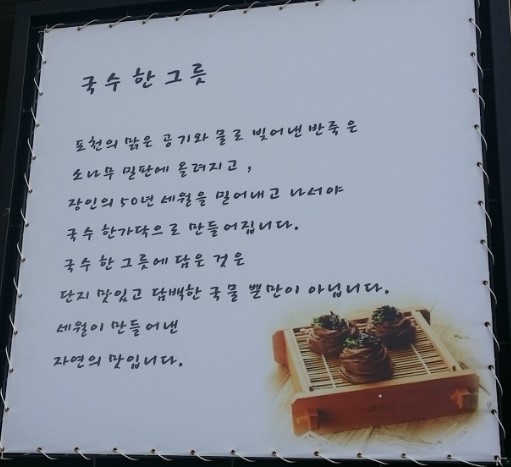 국수 한 그릇
포천의 맑은 공기와 물로 빚어낸 반죽은
소나무 밀판에 올려지고,
장인의 50년 세월을 밀어내고 나서야
국수 한가닥으로 만들어집니다.
국수 한 그릇에 담은 것은
단지 맛있고 담백한 국물 뿐만이 아닙니다.
세월이 만들어낸
자연의 맛입니다.